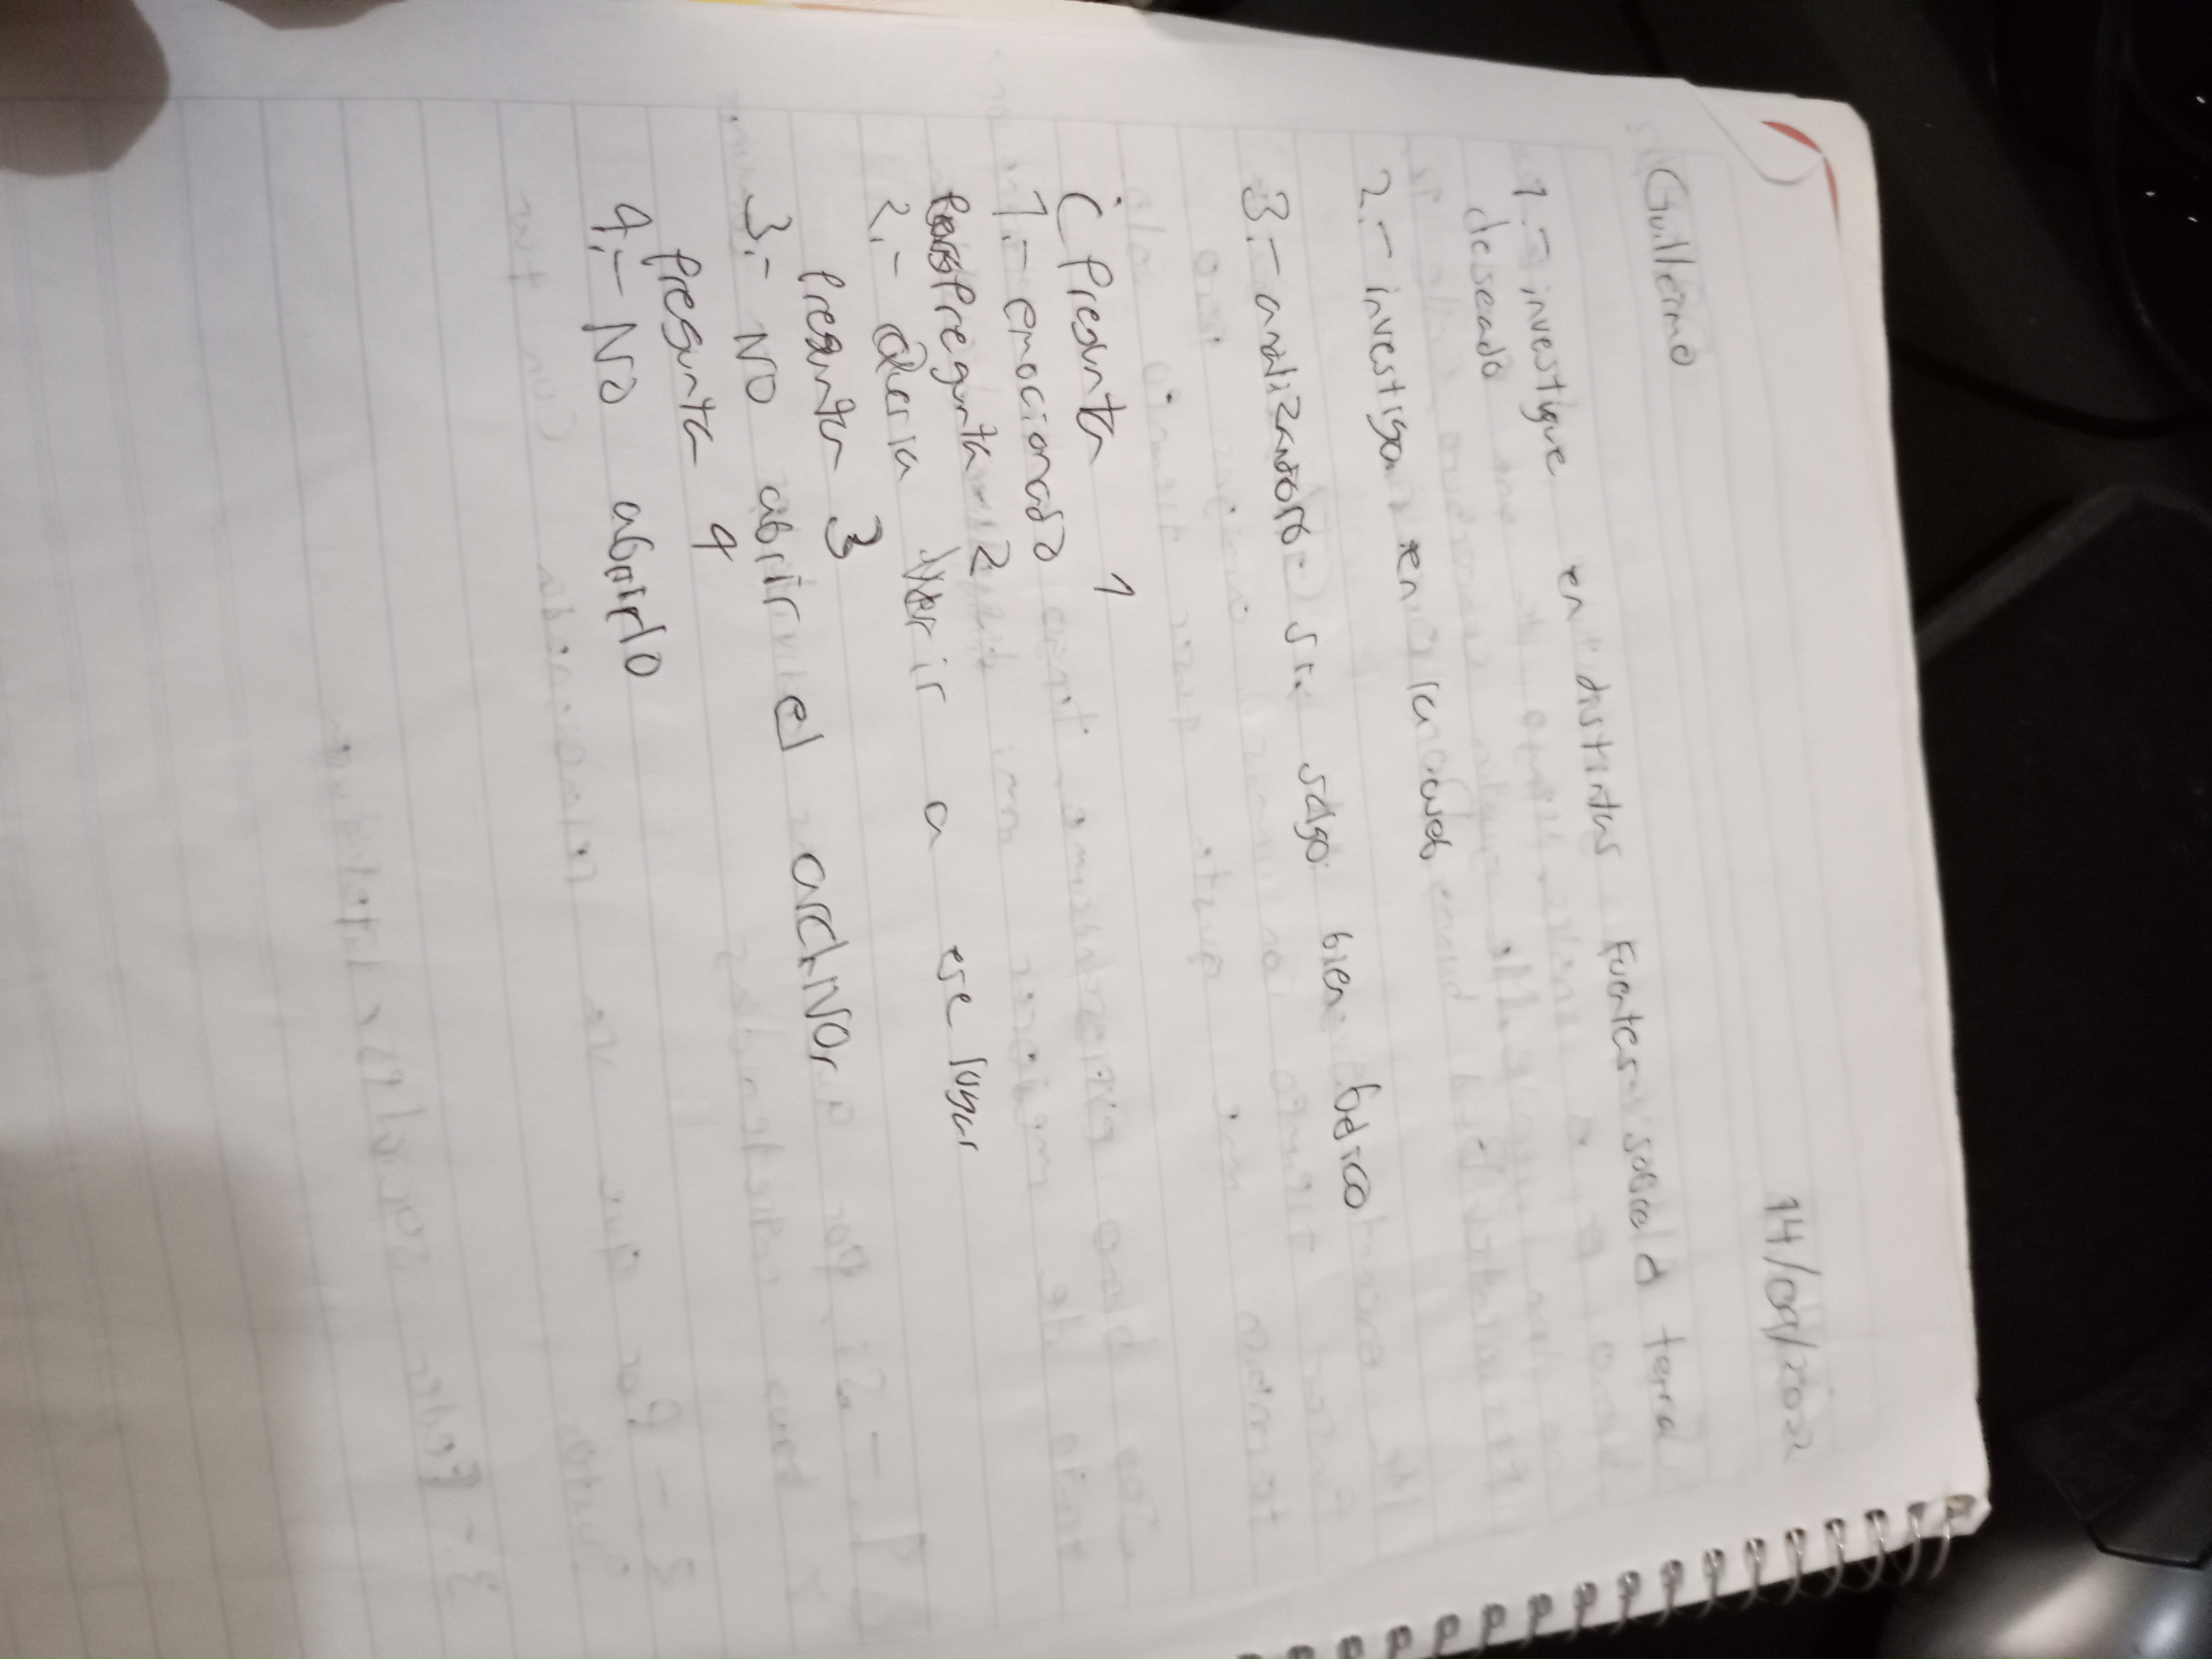 14/09/2022
Guillermo
1.- investigue en distintas Fuentes sobre el tema
deseado
2.- investigar en la web
3.- analizandolo si salgo bien
¿ Pregunta 1
1.- emocionado
Pregunta 2
2.- Queria ir a ese lugar
Pregunta 3
3.- No abrir el archivor
Pregunta 4
4.- No abrirlo